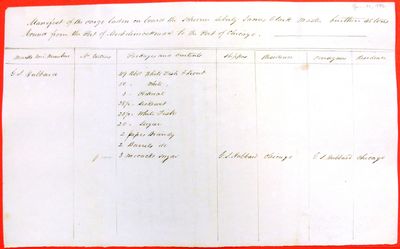 Manifest of the cargo laden on board the Schooner Liberty James Clark Master burthen 28 tons
bound from the Port of Michilimackinac to the Port of Chicago.
Marks and Numbers No. Entries Packages and Contents Shippers Residence Consignees Residence
G. S. Hubbard 29 Bbls White Fish & Trout
10 " White "
3 "
25/2 "
25/2 " White Fish
20 " Sugar
2 pipes Brandy
2 Barrels do
3 mococks Sugar G. S. Hubbard Chicago G. S. Hubbard Chicago